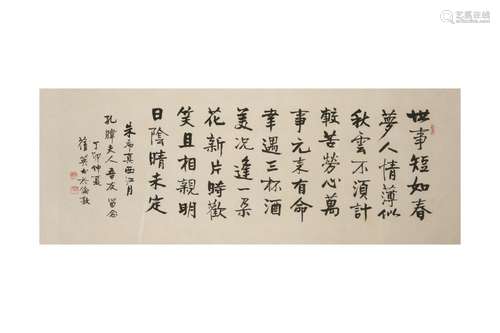 世事短如春
夢人情薄似
秋雲不須計
較苦勞心萬
事元來有命
幸遇三杯酒
美況逢一朵
花新片時歡
笑且相親明
日陰晴未定
朱希真西江月
孔夫人吾友留念
丁卯仲夏
英書於倫敦